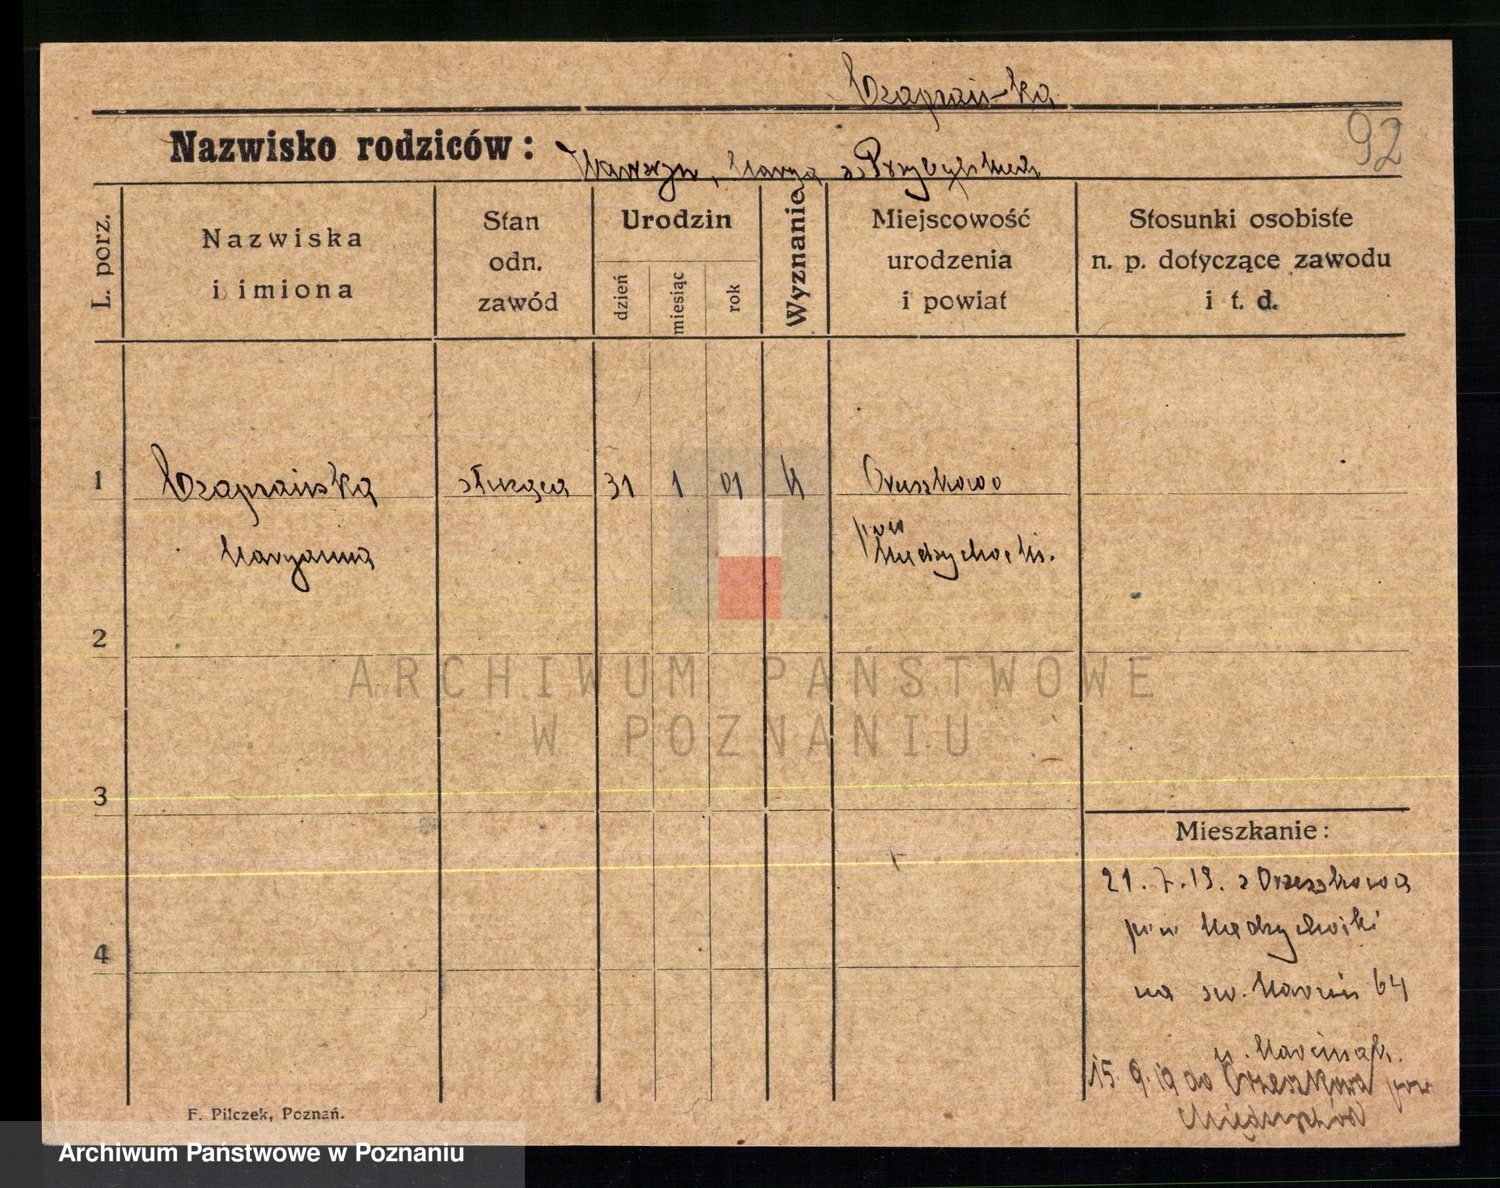 Czaprańska
92
Nazwisko rodziców: Wawrzyn, Marya z Przybylskich
L. porz.
Nazwiska
i imiona
Stan
odn.
zawód
Urodzin
dzień
miesiąc
rok
Wyznanie
Miejscowość
urodzenia
i powiat
Stosunki osobiste
n. p. dotyczące zawodu
i t. d.
1 Czaprańska służąca 31 1 01 k Orzeszkowo
Maryanna
Międzychocki.
2
ARCHIWUM PAŃSTWOWE
W POZNANIU
3
Mieszkanie:
21. 7. 19. z Orzeszkowa
pow Międzychodzki
4
na św. Marcin 64
u. Marciniak.
15. 9. 19 do Orzeszkowa pow
Międzychód
F. Pilczek, Poznań.
Archiwum Państwowe w Poznaniu